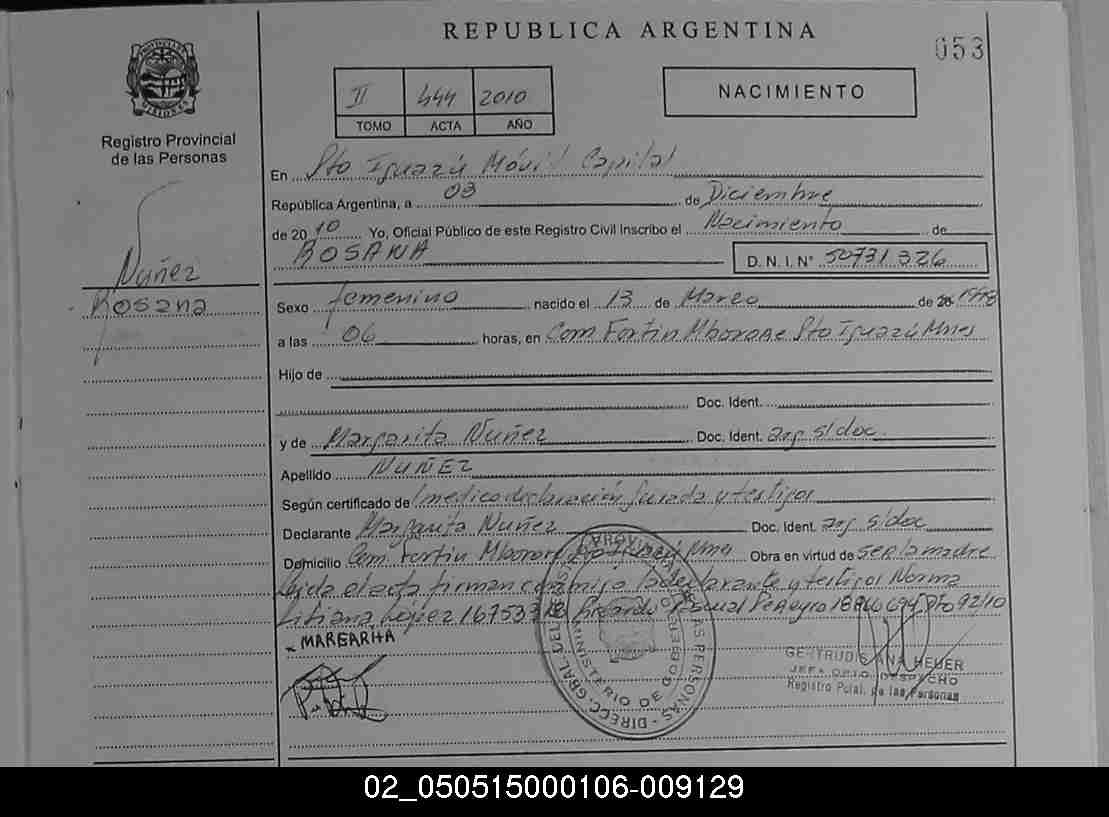 REPUBLICA ARGENTINA
053
PROVINCIA DE MISIONES
Registro Provincial
de las Personas
II 444 2010
TOMO ACTA AÑO
NACIMIENTO
En Pto Iguazú Móvil Capital
República Argentina, a 03 de Diciembre
de 2010 Yo, Oficial Público de este Registro Civil Inscribo el Nacimiento de
ROSANA D.N.I. N° 50731326
Nuñez
Rosana
Sexo femenino nacido el 13 de Marzo de 20 1998
a las 06 horas, en Com Fortin Mborore Pto Iguazú Mnes
Hijo de
Doc. Ident.
y de Margarita Nuñez Doc. Ident. arg s/doc
Apellido NUÑEZ
Según certificado de medico declaración Jurada y testigos
Declarante Margarita Nuñez Doc. Ident. arg s/doc
Domicilio Com. Fortin Mborore Pto Iguazú Mnes Obra en virtud de ser la madre
leida el acta firman conmigo la declarante y testigos Norma
Liliana López Ricardo 92/10
MARGARITA
DIRECC. GRAL. DEL REGISTRO PROVINCIAL DE LAS PERSONAS
MINISTERIO DE GOBIERNO
GERTRUDIS ANA HEUER
JEFA DPTO. DESPACHO
Registro Pcial. de las Personas
02_050515000106-009129